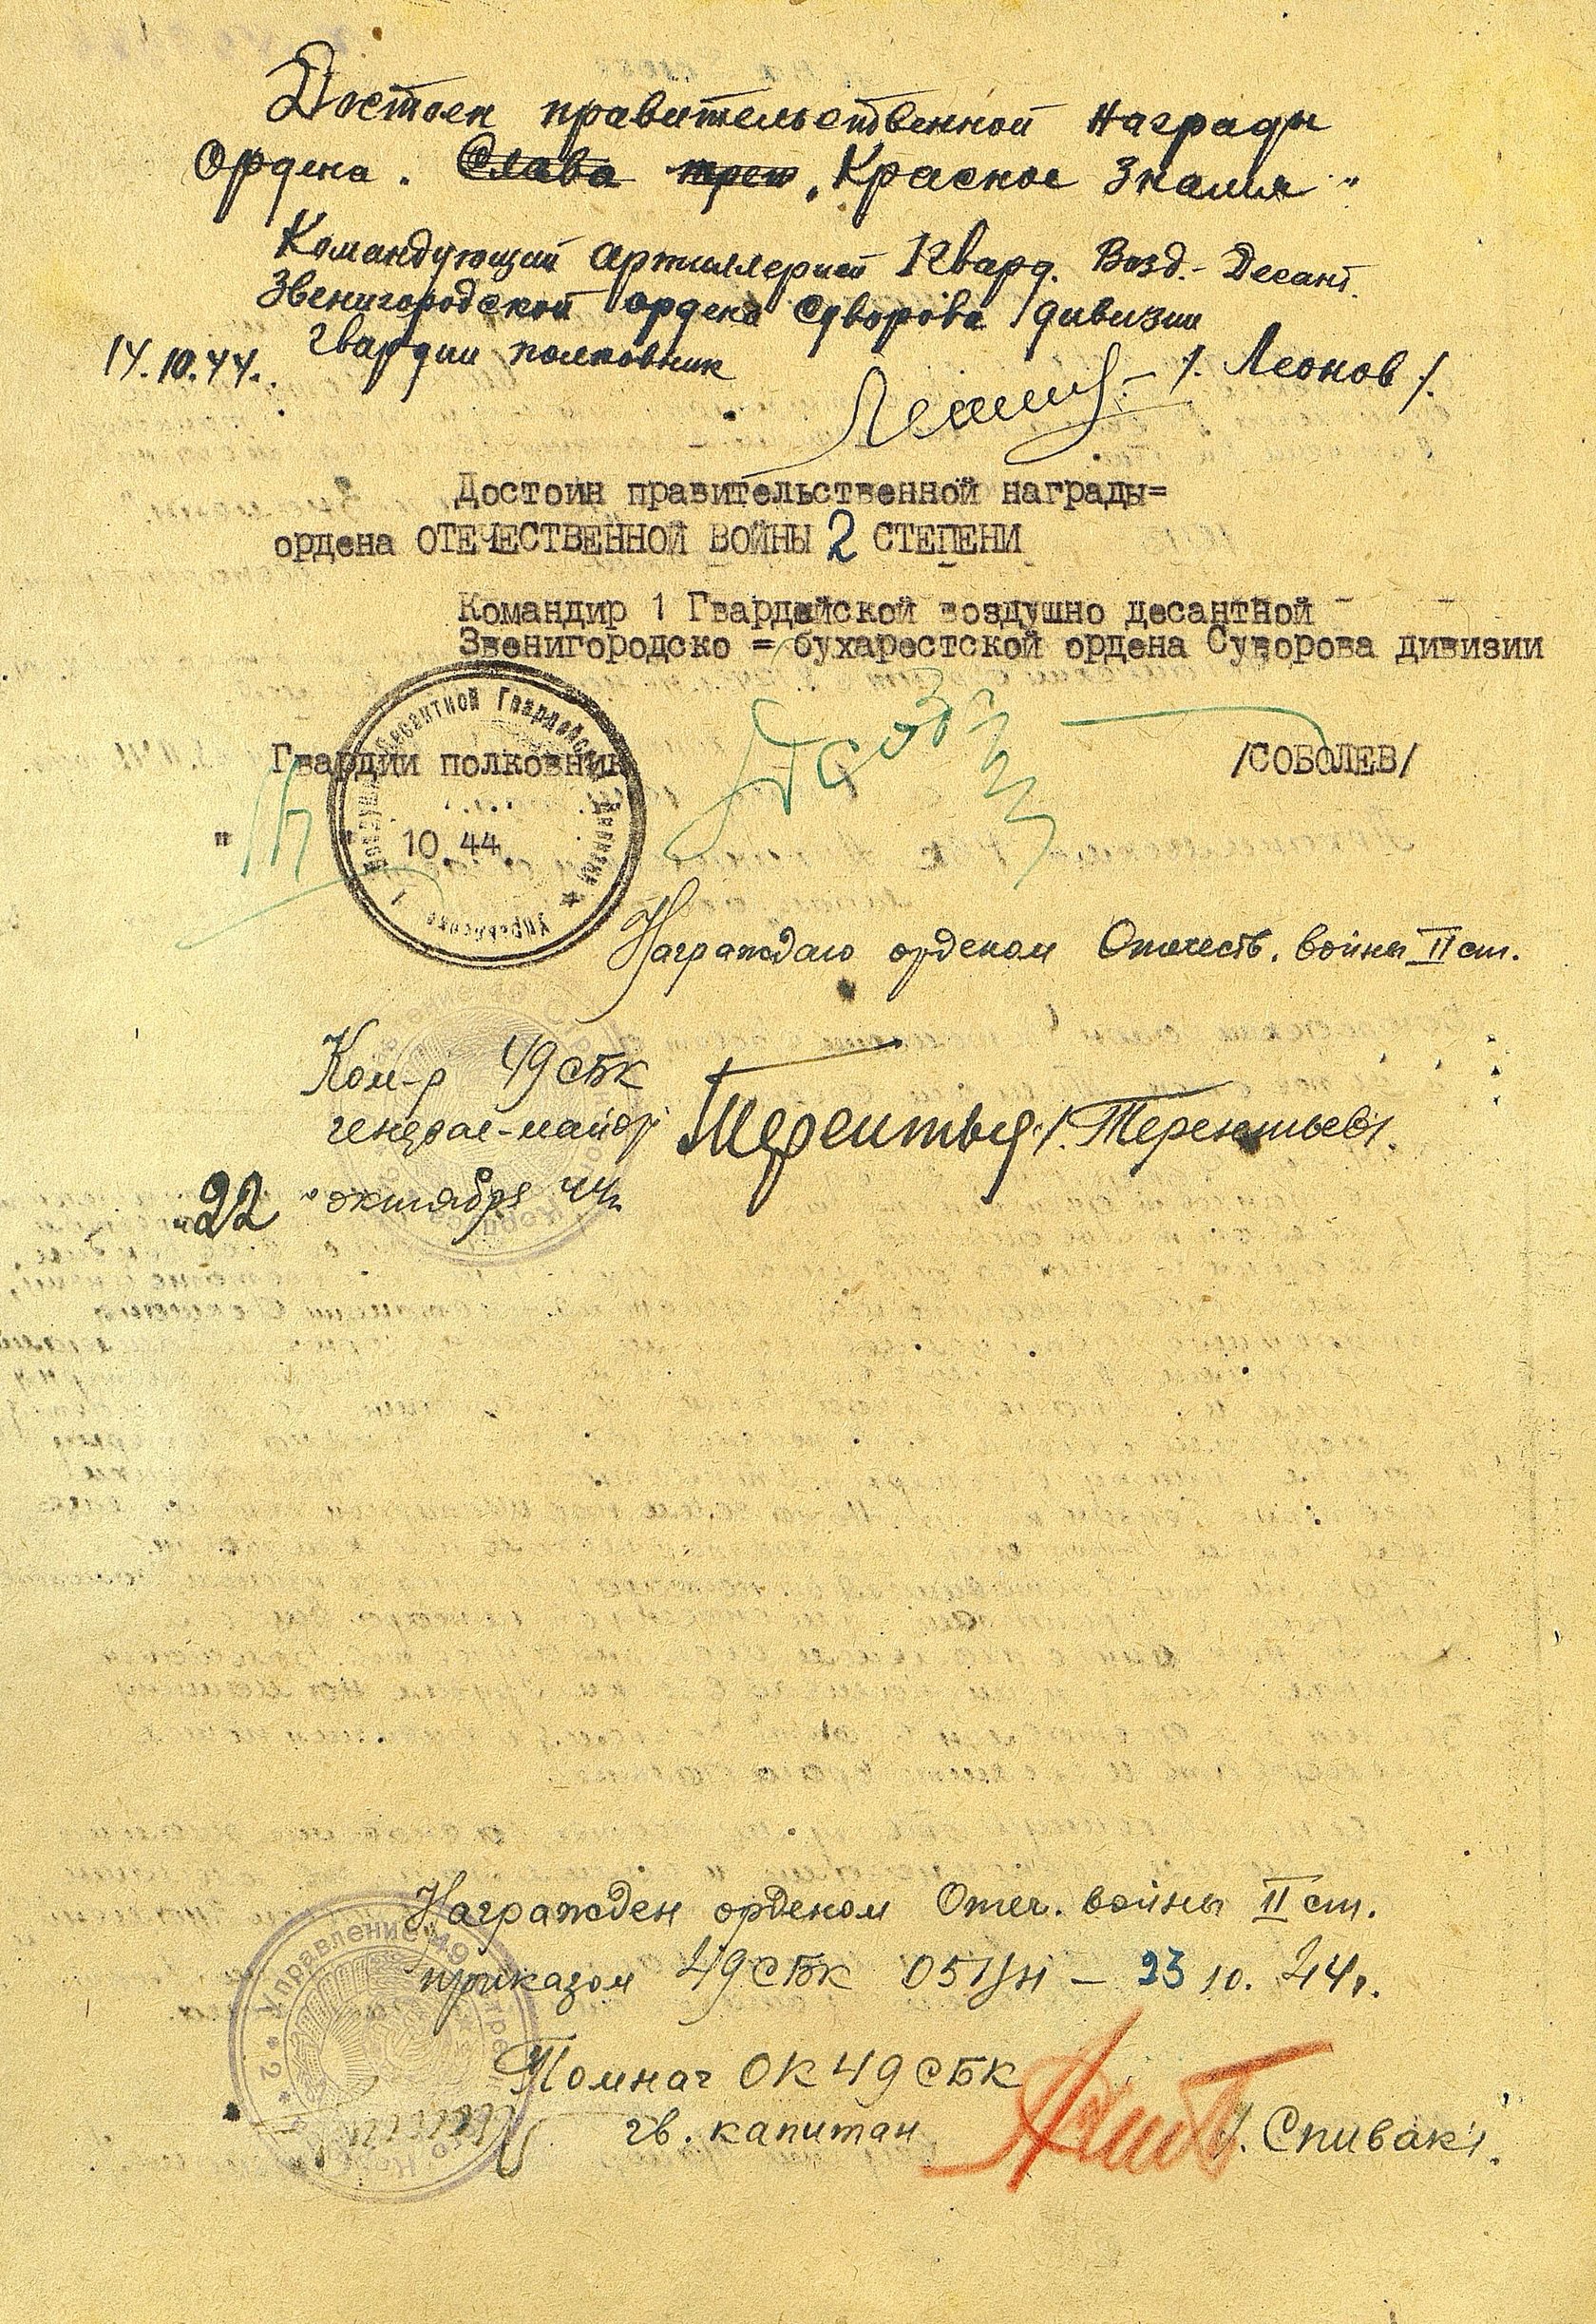 Достоен правительственной награды
Ордена. Слава трет „Красное Знамя"
Командующий артиллерией 1 Гвард. Возд.-Десант.
Звенигородской ордена Суворова дивизии
14.10.44. Гвардии полковник /. Леонов /.
Достоин правительственной награды=
ордена ОТЕЧЕСТВЕННОЙ ВОЙНЫ 2 СТЕПЕНИ
Командир 1 Гвардейской воздушно десантной
Звенигородско = бухарестской ордена Суворова дивизии
Гвардии полковник /СОБОЛЕВ/
" " 10.44.
Награждаю орденом Отечеств. войны II ст.
Ком-р 49 СБК
генерал-майор /. Терентьев/.
„22" октября 44г.
Награжден орденом Отеч. войны II ст.
приказом 49 СБК 051/н – 23 10. 44г.
Управление 49
Помнач ОК 49 СБК
гв. капитан /. Спивак/.